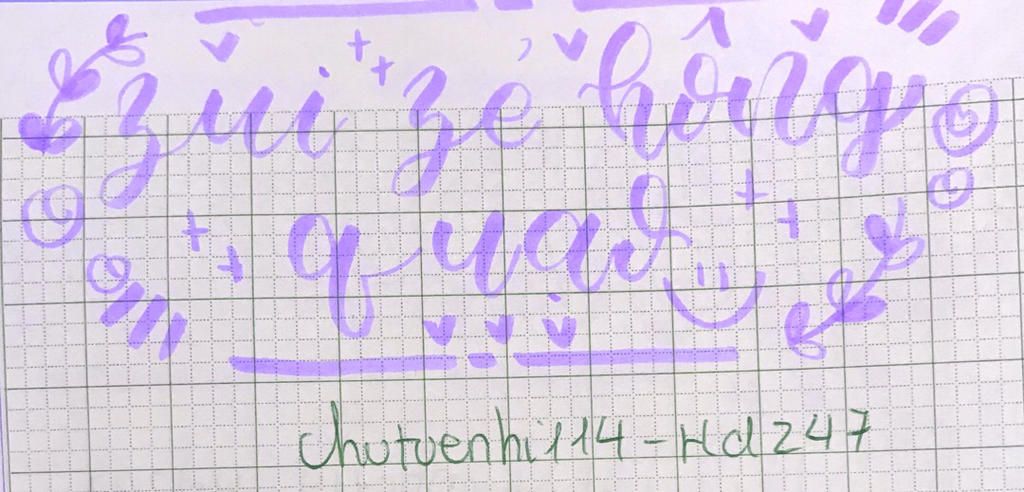 zui zẻ hông
quaó
chutuenhi114-Hd247